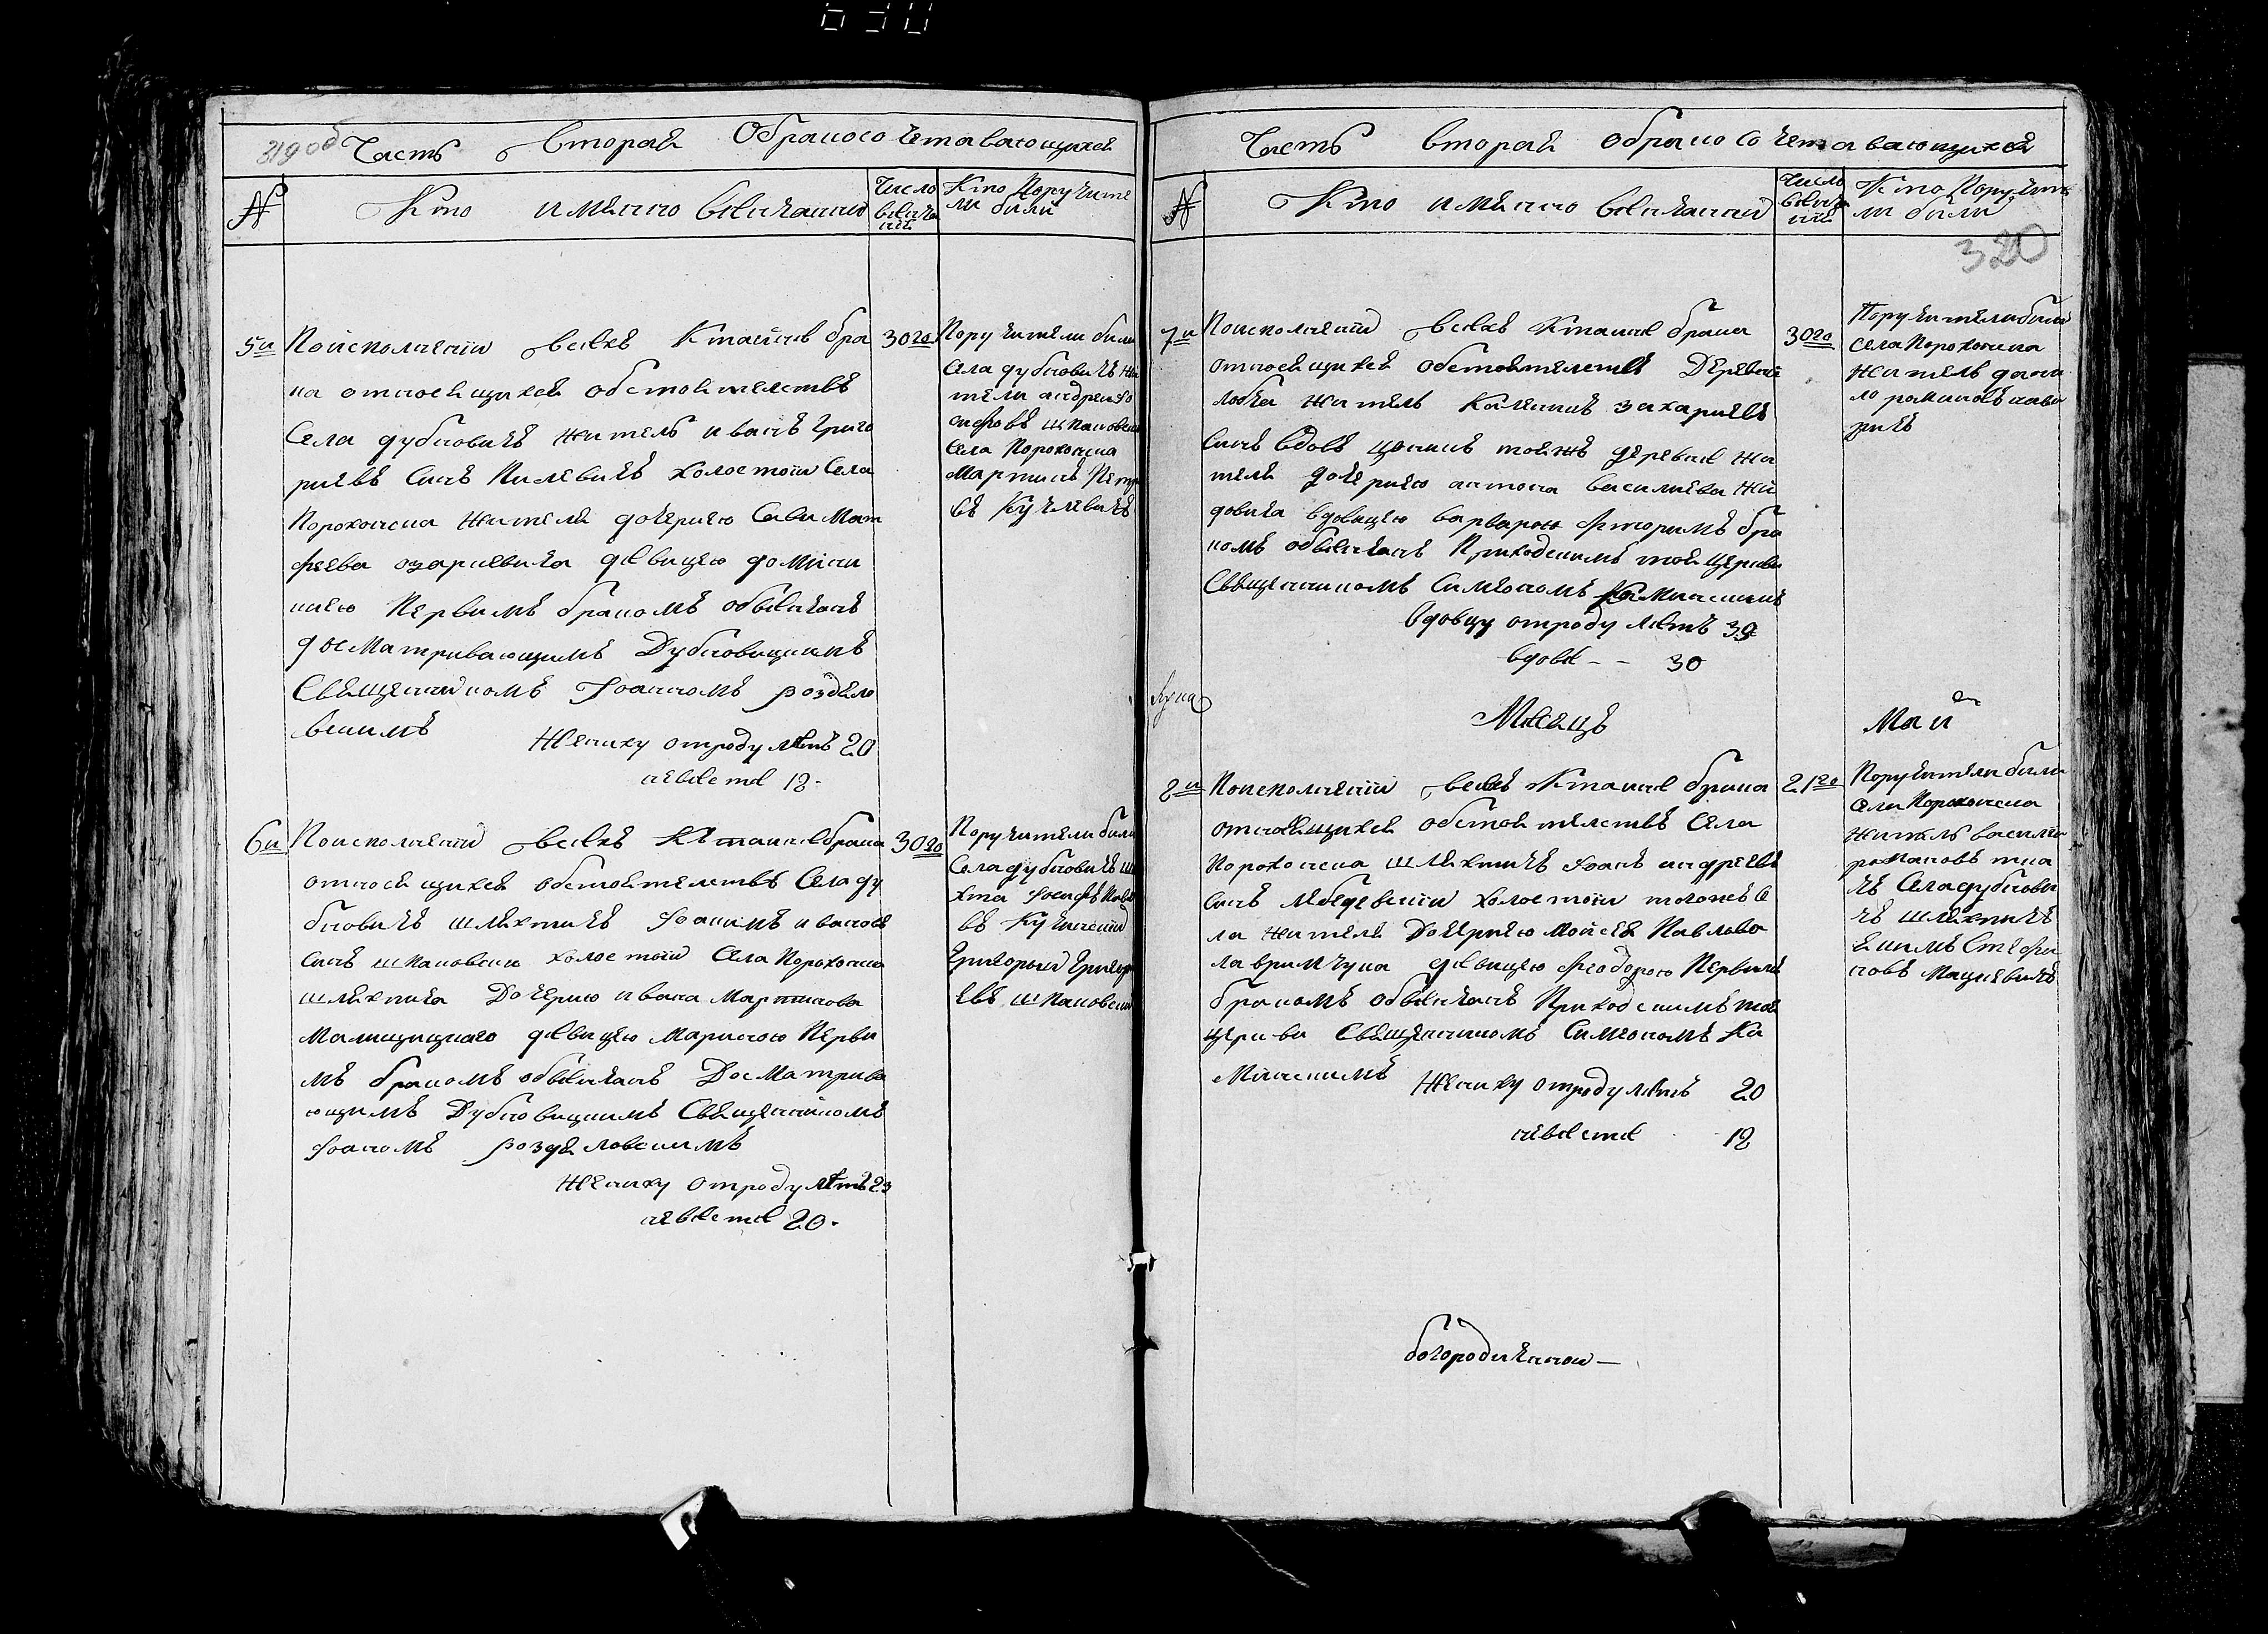 319 об
Часть вторая о бракосочетавающихся
№
Кто имянно венчанны
Число венча ния
Кто поручите
ли были
5й
По исполнении всехъ к таинв бра
ка относящихся обстоятелствъ
Села дубновичъ житель иванъ григо
риевъ синъ Пилевичъ холостой Села
Порохонска жителя дочерию Сави мат
феева озариевича девицею домини
киею Первимъ бракомъ обвенчанъ
досматривающимъ Дубновицкимъ
Священникомъ Иоанномъ роздяло
вскимъ
Жениху отроду летъ 20
невесте 18
30го
Поручители были
Села дубновичъ жи
тели андрей ио
сифовъ шпаковски
Села Порохонска
Мартинъ Петро
въ Кучлевичъ
6й
По исполнении всехъ к таинсв брака
относящихся обстоятелствъ Села ду
бновичъ шляхтичъ Иоакимъ ивановъ
синъ шпаковски холостой Села Порохонска
шляхтича Дочерию ивана Мартинова
Малищицкаго девицею Мариною Перви
мъ бракомъ обвенчанъ Досматрива
ющимъ Дубновицкимъ Священникомъ
Иоаномъ роздяловскимъ
Жениху отроду летъ 23
невесте 20
30го
Поручители были
Села дубновичъ шля
хта Иосифъ Павло
въ Кучински
Григорий Григори
евъ шпаковски
Часть вторая о бракосочетавающихся
№
Кто имянно венчанны
Число венча ния
Кто поручите
ли были
320
7й
По исполнении всехъ к таинсв брака
относящихся обстоятелствъ Деревни
лобча житель Калинникъ захариевъ
синъ вдовъ тоей жъ деревни жи
теля дочерию антона василиева
вдовицею варварою фторимъ бра
комъ обвенчанъ Приходскимъ той Церкви
Священникомъ Симеономъ Каминскимъ
вдовцу отроду летъ 39
вдове - - 30
30го
Поручители были
Села Порохонска
житель дани
ло романовъ
Месяцъ Май
8й
По исполнении всехъ к таинсв брака
относящихся обстоятелствъ Села
Порохонска шляхтичъ Иоанъ андреевъ
синъ лебедевский холостой тогожъ се
ла жителя Дочерию Мойсея Павлова
лавримчука девицею феодорою Первимъ
бракомъ обвенчанъ Приходскимъ той
церкви Священникомъ Симеономъ Ка
минскимъ
Жениху отроду летъ 20
невесте 18
21го
Поручители были
Села Порохонска
житель василий
романовъ тка
чъ Села дубнови
чъ шляхтичъ
Якимъ Стефа
новъ Мацкевичъ
богородичной —